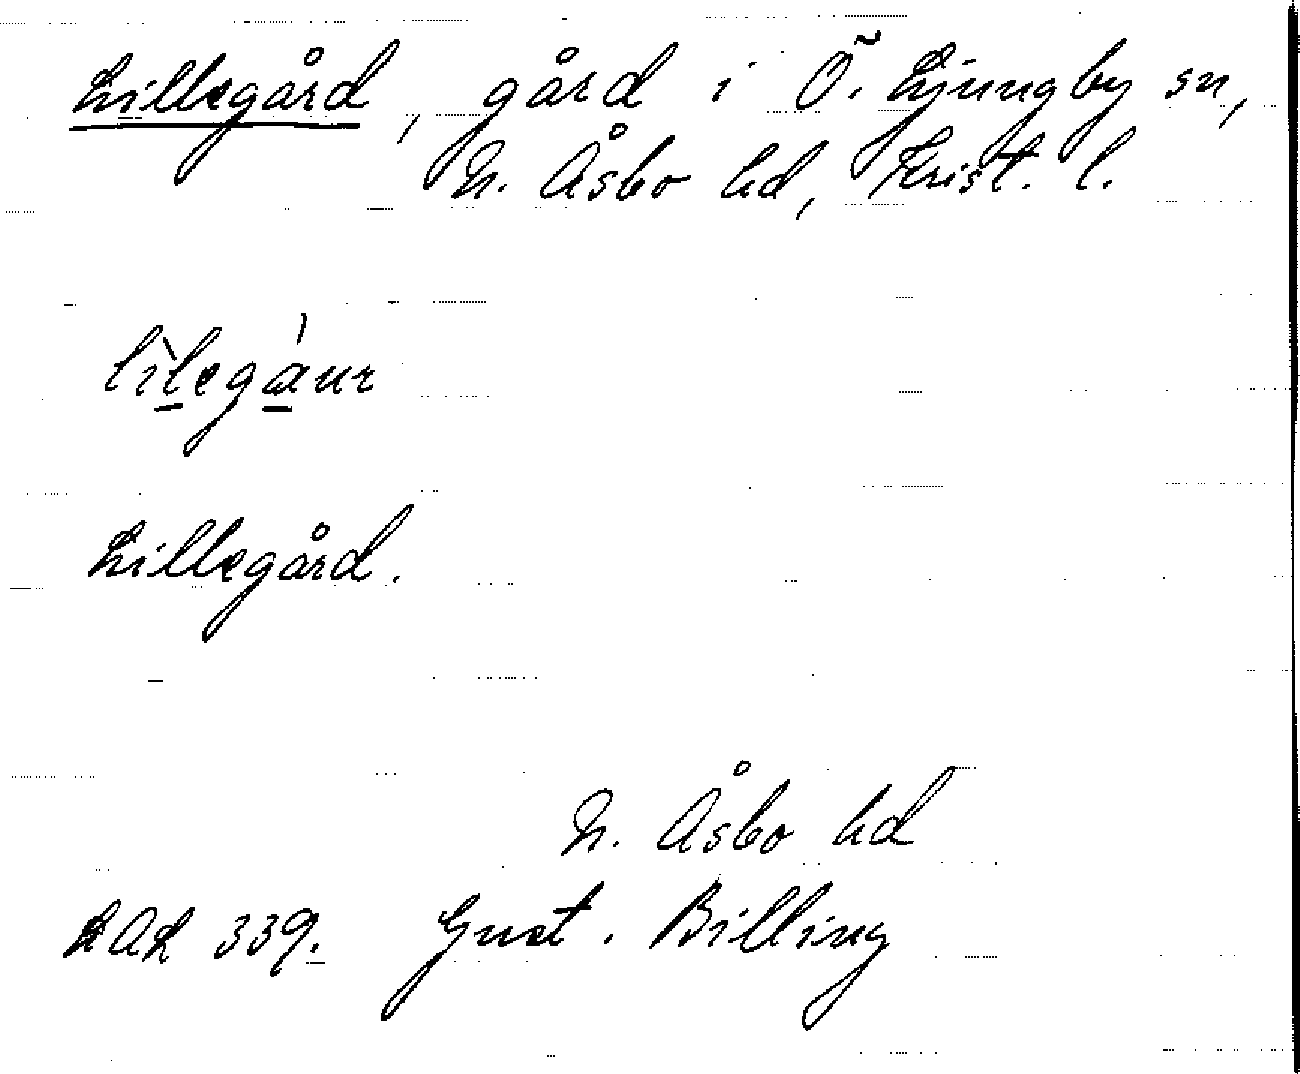 Lillegård, gård i Ö. Ljungby sn,
N. Åsbo hd, Krist. l.
lìlegáur
Lillegård.
N. Åsbo hd
LAL 339. Gust. Billing